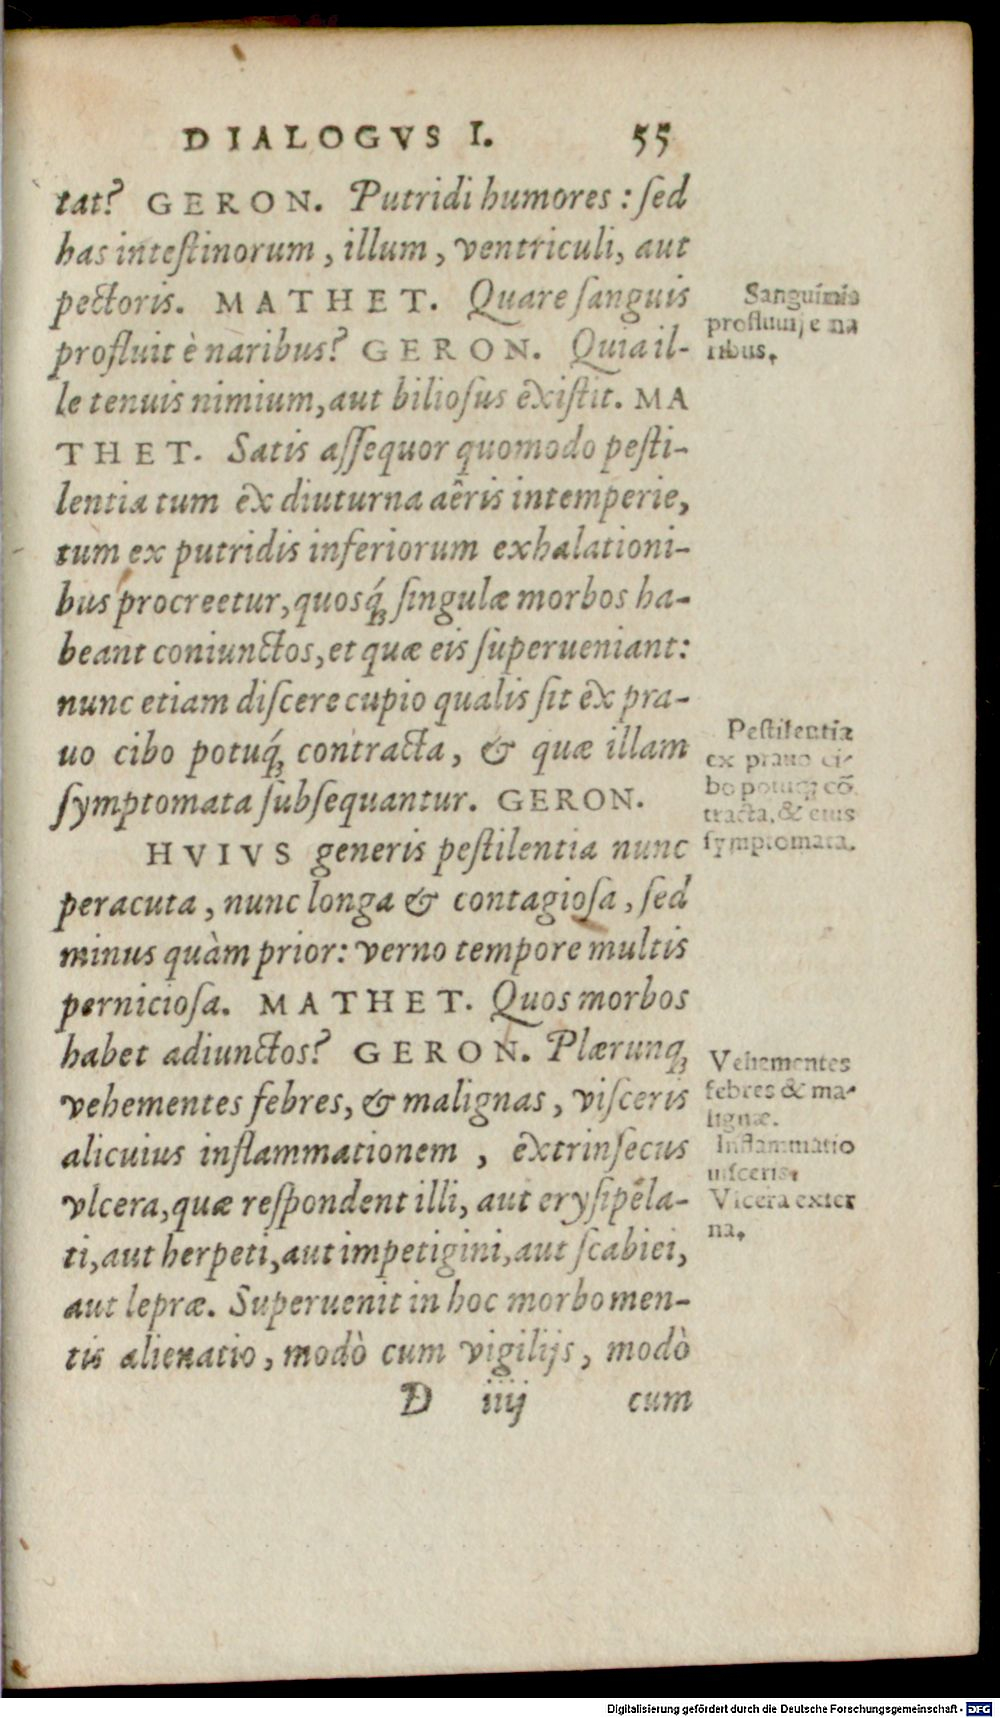 DIALOGVS I. 55
tat? GERON. Putridi humores: ſed
has inteſtinorum, illum, ventriculi, aut
pectoris. MATHET. Quare ſanguis
profluit è naribus? GERON. Quia il-
le tenuis nimium, aut bilioſus exiſtit. MA
THET. Satis aſſequor quomodo peſti-
lentia tum ex diuturna aëris intemperie,
tum ex putridis inferiorum exhalationi-
bus procreetur, quosq́; ſingulæ morbos ha-
beant coniunctos, et quæ eis ſuperueniant:
nunc etiam diſcere cupio qualis ſit ex pra-
uo cibo potuq́; contracta, & quæ illam
ſymptomata ſubſequantur. GERON.
HVIVS generis peſtilentia nunc
peracuta, nunc longa & contagioſa, ſed
minus quàm prior: verno tempore multis
pernicioſa. MATHET. Quos morbos
habet adiunctos? GERON. Plærunq;
vehementes febres, & malignas, viſceris
alicuius inflammationem, extrinſecus
vlcera, quæ reſpondent illi, aut eryſipela-
ti, aut herpeti, aut impetigini, aut ſcabiei,
aut lepræ. Superuenit in hoc morbo men-
tis alienatio, modò cum vigilijs, modò
D iiij cum
Sanguinis
profluuij e na
ribus.
Peſtilentia
ex prauo ci-
bo potuq; cō
tracta, & eius
ſymptomata.
Vehementes
febres & ma-
lignæ.
Inflammatio
uiſceris.
Vlcera exter
na.
Digitalisierung gefördert durch die Deutsche Forschungsgemeinschaft - DFG